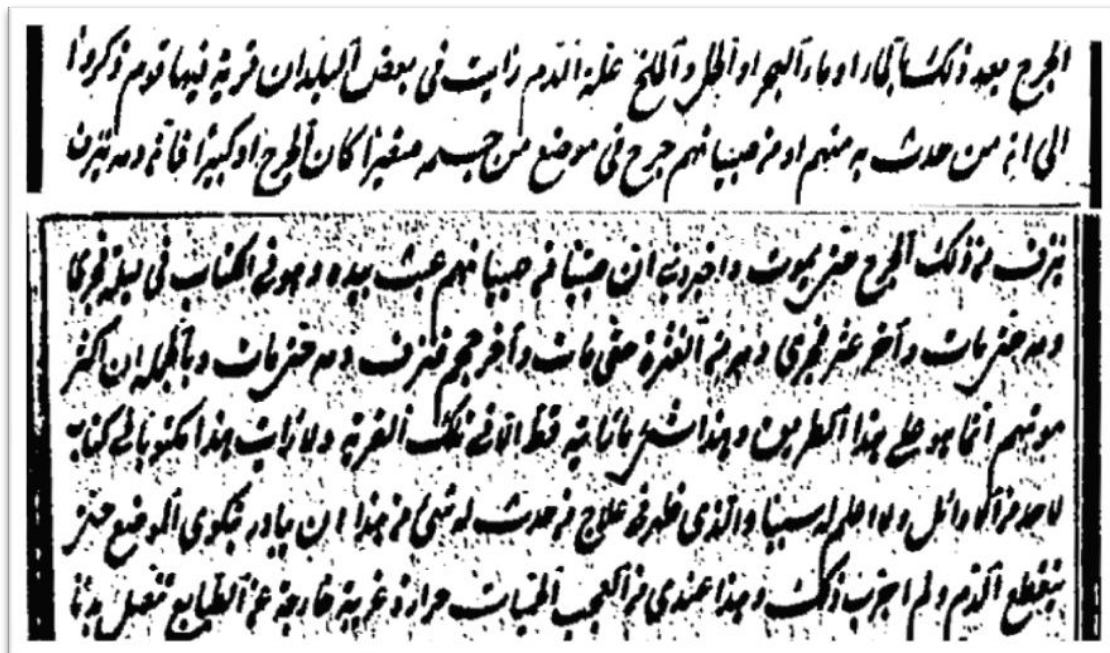 الجرح بعد ذلك بالماء او ماء البحر او الخل والملح علة الدم رايت في بعض البلدان قرية فيها قوم ذكروا
الى انه من حدث به منهم او من صبيانهم جرح في موضع من جسمه صغيرا كان الجرح او كبيرا فانه دمه ينزف
ينزف من ذلك الجرح حتى يموت واخبروني ان صبيا من صبيانهم عبث بيده وهو في الكتاب في فجرى
دمه حتى مات وآخر عثر فجرى دمه من العثرة حتى مات وآخر حجم فنزف دمه حتى مات وبالجملة ان اكثر
موتهم انما هو على هذا الطريق وهذا شئ ما رايته قط الا في تلك القرية ولا رايت هذا مكتوبا في كتاب
لاحد من الاوائل ولا اعلم له سببا والذي ظهر في علاج من حدث له شئ من هذا ان يبادر فيكوى الموضع حتى
ينقطع الدم ولم اجرب ذلك وهذا عندي من العجب الحميات حرارة غريبة خارجة عن الطبايع